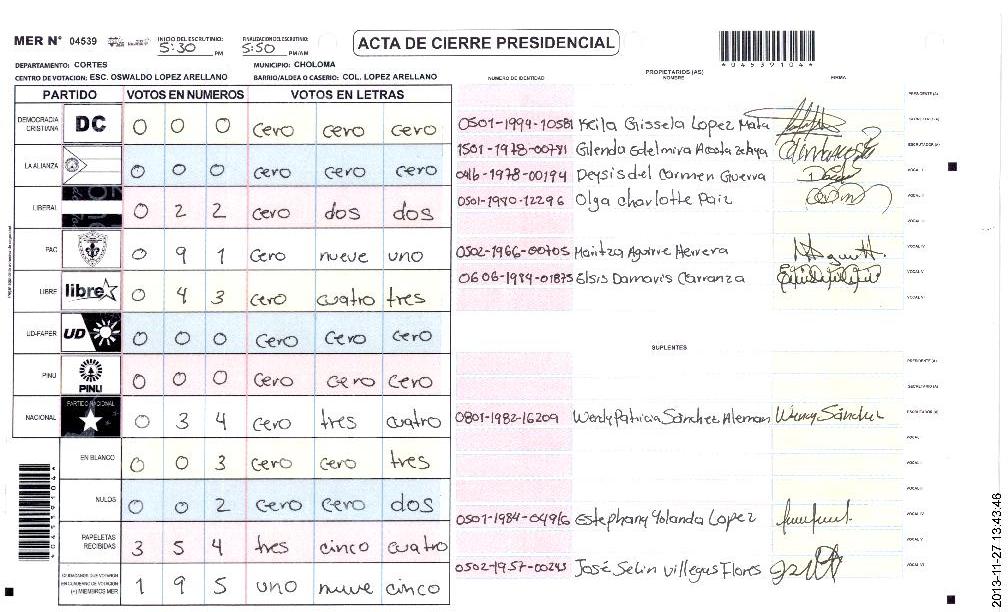 MER N° 04539
INICIO DEL ESCRUTINIO: 5:30 PM
FINALIZACION DEL ESCRUTINIO: 5:50 PM/AM
ACTA DE CIERRE PRESIDENCIAL
*04539104*
DEPARTAMENTO: CORTES
MUNICIPIO: CHOLOMA
CENTRO DE VOTACION: ESC. OSWALDO LOPEZ ARELLANO
BARRIO/ALDEA O CASERIO: COL. LOPEZ ARELLANO
PARTIDO VOTOS EN NUMEROS VOTOS EN LETRAS
DEMOCRACIA CRISTIANA DC 0 0 0 cero cero cero
LA ALIANZA 0 0 0 cero cero cero
LIBERAL 0 2 2 cero dos dos
PAC 0 9 1 cero nueve uno
LIBRE libre 0 4 3 cero cuatro tres
UD-FAPER UD 0 0 0 cero cero cero
PINU PINU 0 0 0 cero cero cero
NACIONAL PARTIDO NACIONAL 0 3 4 cero tres cuatro
EN BLANCO 0 0 3 cero cero tres
NULOS 0 0 2 cero cero dos
PAPELETAS RECIBIDAS 3 5 4 tres cinco cuatro
CIUDADANOS QUE VOTARON EN CUADERNO DE VOTACION (+) MIEMBROS MER 1 9 5 uno nueve cinco
*04539104*
NUMERO DE IDENTIDAD PROPIETARIOS (AS) NOMBRE FIRMA
PRESIDENTE(A)
0501-1994-10581 Keila Gissela Lopez Mata SECRETARIO(A)
1501-1978-00781 Glenda Edelmira Acosta Zelaya ESCRUTADOR(A)
0416-1978-00194 Deysis del Carmen Guerra VOCAL I
0501-1990-12296 Olga Charlotte Paiz VOCAL II
VOCAL III
0502-1966-00705 Maritza Aguirre Herrera VOCAL IV
0606-1984-01875 Elsis Damaris Carranza VOCAL V
VOCAL VI
SUPLENTES
PRESIDENTE(A)
SECRETARIO(A)
0801-1982-16209 Wendy Patricia Sánchez Aleman Wendy Sánchez ESCRUTADOR(A)
VOCAL I
VOCAL II
VOCAL III
0501-1984-04916 Estephany Yolanda Lopez VOCAL IV
VOCAL V
0502-1957-00243 José Selin Villegas Flores VOCAL VI
2013-11-27 13:43:46